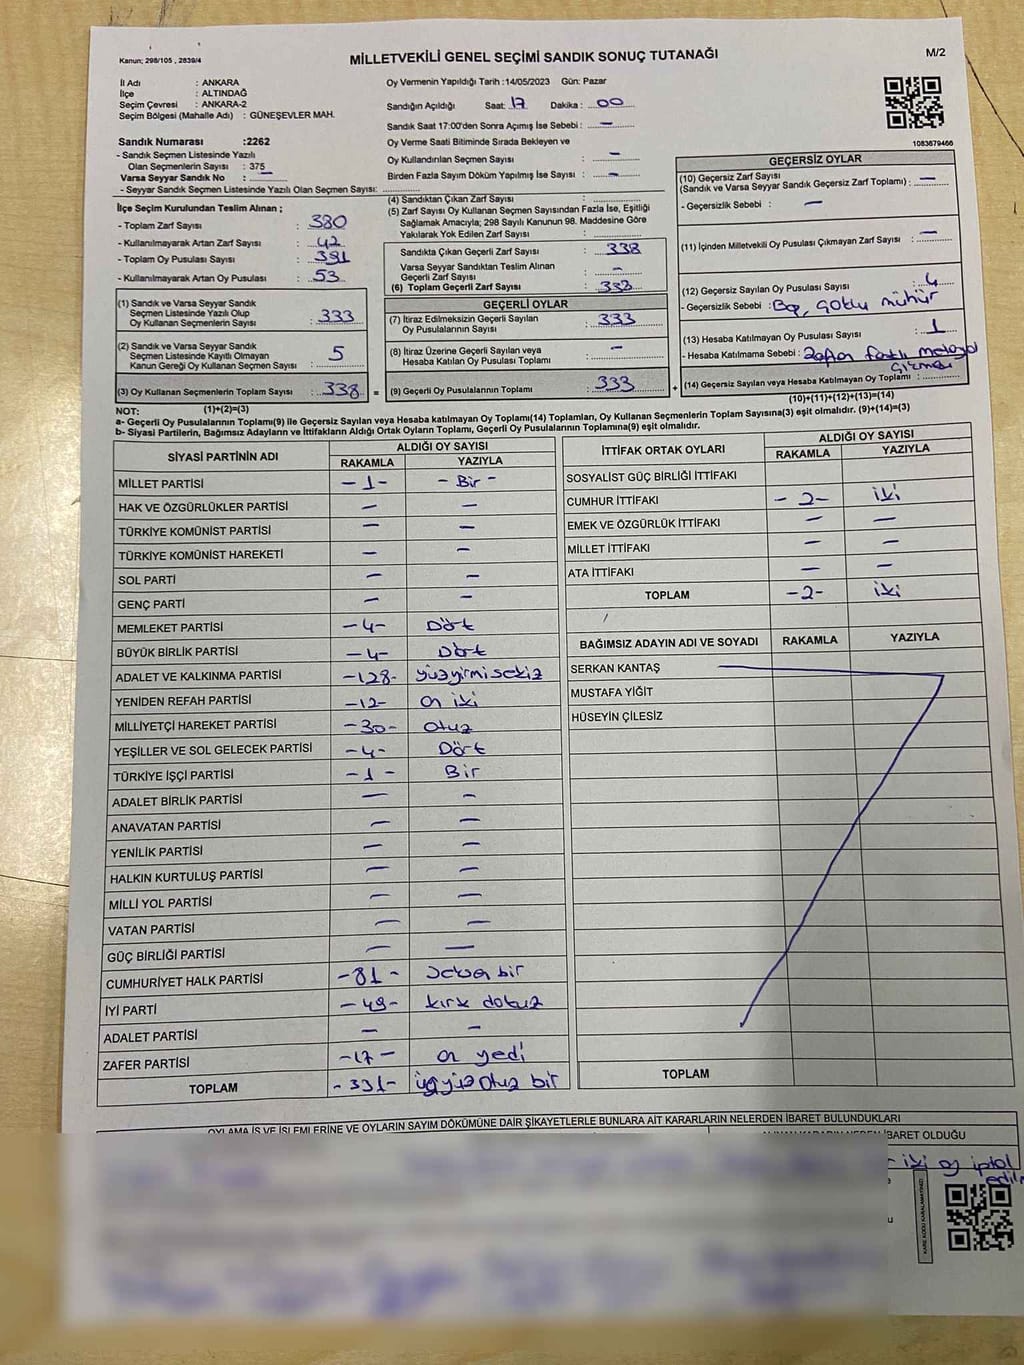 Kanun; 298/105 , 2839/4
MİLLETVEKİLİ GENEL SEÇİMİ SANDIK SONUÇ TUTANAĞI
M/2
İl Adı : ANKARA
İlçe : ALTINDAĞ
Seçim Çevresi : ANKARA-2
Seçim Bölgesi (Mahalle Adı) : GÜNEŞEVLER MAH.
Sandık Numarası :2262
- Sandık Seçmen Listesinde Yazılı
Olan Seçmenlerin Sayısı : 375
Varsa Seyyar Sandık No : –
- Seyyar Sandık Seçmen Listesinde Yazılı Olan Seçmen Sayısı:
Oy Vermenin Yapıldığı Tarih :14/05/2023 Gün: Pazar
Sandığın Açıldığı Saat: 17 Dakika : 00
Sandık Saat 17:00'den Sonra Açımış İse Sebebi : –
Oy Verme Saati Bitiminde Sırada Bekleyen ve
Oy Kullandırılan Seçmen Sayısı : –
Birden Fazla Sayım Döküm Yapılmış İse Sayısı : –
1083679466
İlçe Seçim Kurulundan Teslim Alınan ;
- Toplam Zarf Sayısı : 380
- Kullanılmayarak Artan Zarf Sayısı : 42
- Toplam Oy Pusulası Sayısı : 391
- Kullanılmayarak Artan Oy Pusulası : 53
(1) Sandık ve Varsa Seyyar Sandık
Seçmen Listesinde Yazılı Olup
Oy Kullanan Seçmenlerin Sayısı : 333
(2) Sandık ve Varsa Seyyar Sandık
Seçmen Listesinde Kayıtlı Olmayan
Kanun Gereği Oy Kullanan Seçmen Sayısı : 5
(3) Oy Kullanan Seçmenlerin Toplam Sayısı : 338 =
(4) Sandıktan Çıkan Zarf Sayısı :
(5) Zarf Sayısı Oy Kullanan Seçmen Sayısından Fazla İse, Eşitliği
Sağlamak Amacıyla; 298 Sayılı Kanunun 98. Maddesine Göre
Yakılarak Yok Edilen Zarf Sayısı :
Sandıkta Çıkan Geçerli Zarf Sayısı : 338
Varsa Seyyar Sandıktan Teslim Alınan
Geçerli Zarf Sayısı : –
(6) Toplam Geçerli Zarf Sayısı : 338
GEÇERLİ OYLAR
(7) İtiraz Edilmeksizin Geçerli Sayılan
Oy Pusulalarının Sayısı : 333
(8) İtiraz Üzerine Geçerli Sayılan veya
Hesaba Katılan Oy Pusulası Toplamı : –
(9) Geçerli Oy Pusulalarının Toplamı : 333 +
GEÇERSİZ OYLAR
(10) Geçersiz Zarf Sayısı
(Sandık ve Varsa Seyyar Sandık Geçersiz Zarf Toplamı) : –
- Geçersizlik Sebebi : –
(11) İçinden Milletvekili Oy Pusulası Çıkmayan Zarf Sayısı : –
(12) Geçersiz Sayılan Oy Pusulası Sayısı : 4
- Geçersizlik Sebebi : Boş, çoklu mühür
(13) Hesaba Katılmayan Oy Pusulası Sayısı : 1
- Hesaba Katılmama Sebebi : Zarftan farklı materyal
çıkması
(14) Geçersiz Sayılan veya Hesaba Katılmayan Oy Pusulası Toplamı :
(10)+(11)+(12)+(13)=(14)
NOT: (1)+(2)=(3)
a- Geçerli Oy Pusulalarının Toplamı(9) ile Geçersiz Sayılan veya Hesaba katılmayan Oy Toplamı(14) Toplamları, Oy Kullanan Seçmenlerin Toplam Sayısına(3) eşit olmalıdır. (9)+(14)=(3)
b- Siyasi Partilerin, Bağımsız Adayların ve İttifakların Aldığı Ortak Oyların Toplamı, Geçerli Oy Pusulalarının Toplamına(9) eşit olmalıdır.
SİYASİ PARTİNİN ADI ALDIĞI OY SAYISI
RAKAMLA YAZIYLA
MİLLET PARTİSİ –1– – Bir –
HAK VE ÖZGÜRLÜKLER PARTİSİ – –
TÜRKİYE KOMÜNİST PARTİSİ – –
TÜRKİYE KOMÜNİST HAREKETİ – –
SOL PARTİ – –
GENÇ PARTİ – –
MEMLEKET PARTİSİ –4– Dört
BÜYÜK BİRLİK PARTİSİ –4– Dört
ADALET VE KALKINMA PARTİSİ –128– yüzyirmisekiz
YENİDEN REFAH PARTİSİ –12– on iki
MİLLİYETÇİ HAREKET PARTİSİ –30– otuz
YEŞİLLER VE SOL GELECEK PARTİSİ –4– Dört
TÜRKİYE İŞÇİ PARTİSİ –1– Bir
ADALET BİRLİK PARTİSİ – –
ANAVATAN PARTİSİ – –
YENİLİK PARTİSİ – –
HALKIN KURTULUŞ PARTİSİ – –
MİLLİ YOL PARTİSİ – –
VATAN PARTİSİ – –
GÜÇ BİRLİĞİ PARTİSİ – –
CUMHURİYET HALK PARTİSİ –81– seksen bir
İYİ PARTİ –49– kırk dokuz
ADALET PARTİSİ – –
ZAFER PARTİSİ –17– on yedi
TOPLAM –331– üçyüz otuz bir
İTTİFAK ORTAK OYLARI ALDIĞI OY SAYISI
RAKAMLA YAZIYLA
SOSYALİST GÜÇ BİRLİĞİ İTTİFAKI
CUMHUR İTTİFAKI –2– iki
EMEK VE ÖZGÜRLÜK İTTİFAKI – –
MİLLET İTTİFAKI – –
ATA İTTİFAKI – –
TOPLAM –2– iki
BAĞIMSIZ ADAYIN ADI VE SOYADI RAKAMLA YAZIYLA
SERKAN KANTAŞ
MUSTAFA YİĞİT
HÜSEYİN ÇİLESİZ
TOPLAM
OYLAMA İŞ VE İŞLEMLERİNE VE OYLARIN SAYIM DÖKÜMÜNE DAİR ŞİKAYETLERLE BUNLARA AİT KARARLARIN NELERDEN İBARET BULUNDUKLARI
İBARET OLDUĞU
– iki oy iptal
edil
KARE KODU KARALAMAYINIZ!